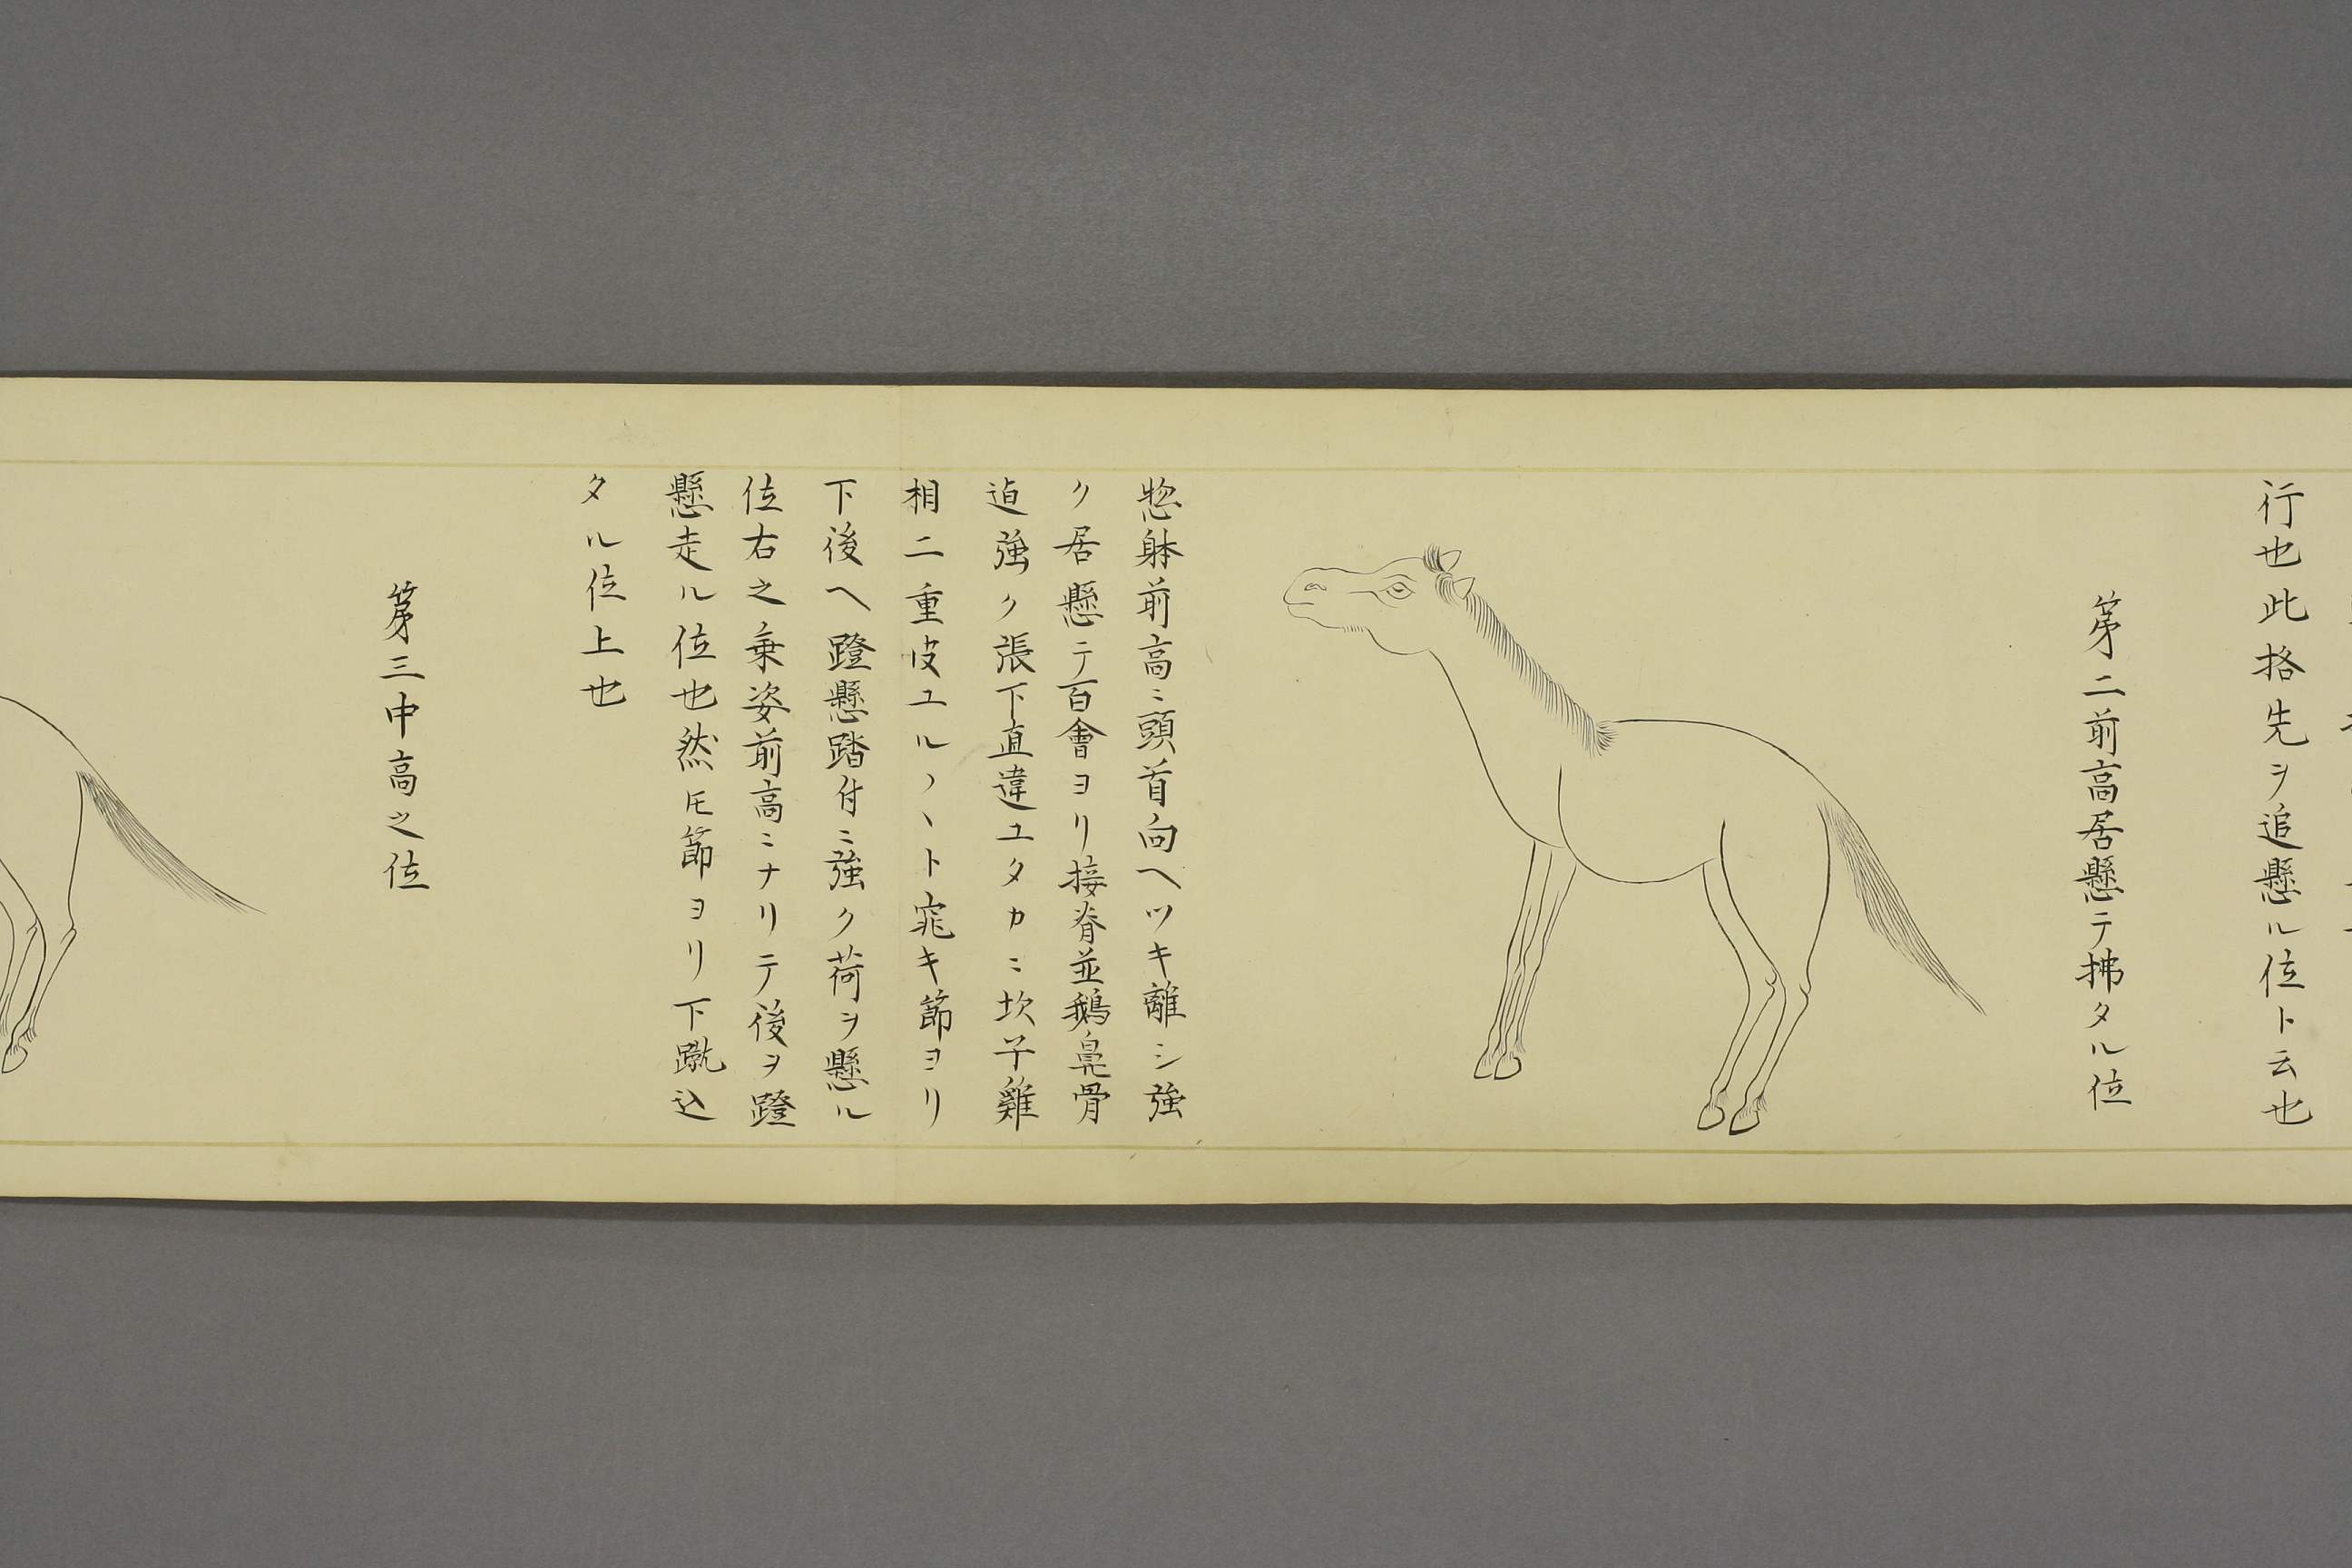 行也此格先ヲ追懸ル位ト云也
第二前高居懸テ拂タル位
惣躰前高ニ頭首向ヘツキ離シ強
ク居懸テ百會ヨリ接脊並鵝鼻骨
迫強ク張下直違ユタカニ坎子雞
相二重皮ユルヽヽト窕キ節ヨリ
下後ヘ蹬懸踏付ニ強ク荷ヲ懸ル
位右之乗姿前高ニナリテ後ヲ蹬
懸走ル位也然𪜈節ヨリ下蹴込
タル位上也
第三中高之位